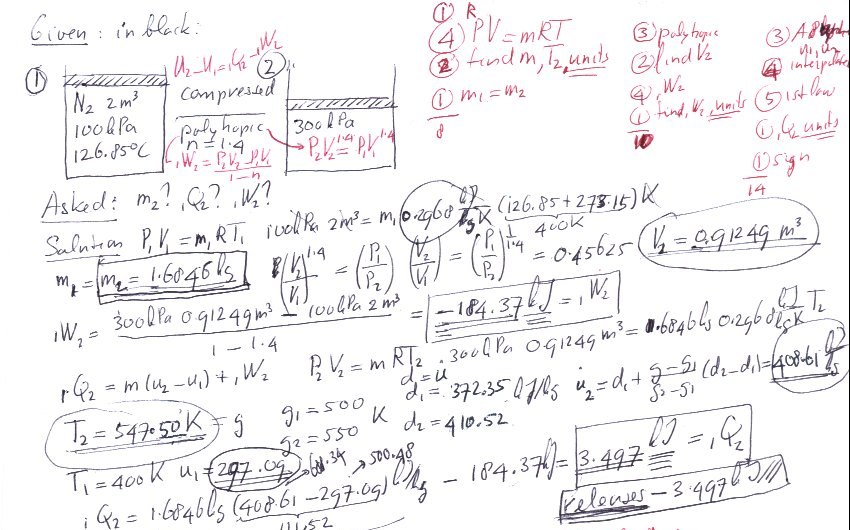 Given: in black:
① N₂ 2m³
100kPa
126.85°C
U₂-U₁=₁Q₂-₁W₂
compressed
polytropic
n=1.4
₁W₂ = (P₂V₂-P₁V₁)/(1-n)
② 300kPa
P₂V₂^1.4 = P₁V₁^1.4
① R
④ PV=mRT
② find m, T₂, units
① m₁=m₂
8
③ polytropic
② find V₂
④ ₁W₂
① find, V₂, units
10
③ A8
u₁, u₂
④ interpolate
⑤ 1st law
① ₁Q₂ units
① sign
14
Asked: m₂? ₁Q₂? ₁W₂?
Solution P₁V₁=m₁RT₁ 100kPa 2m³=m₁ 0.2968 kJ/kg K (126.85+273.15)K
400K
m₁ = m₂ = 1.6846kg (V₂/V₁)^1.4 = (P₁/P₂) (V₂/V₁) = (P₁/P₂)^(1/1.4) = 0.45625 V₂ = 0.91249m³
₁W₂ = (300kPa 0.91249m³ - 100kPa 2m³)/(1-1.4) = -184.37kJ = ₁W₂
₁Q₂ = m(u₂-u₁)+₁W₂ P₂V₂=mRT₂ 300kPa 0.91249m³ = 1.6846kg 0.2968 kJ/kg K T₂
d₁=u
T₂ = 547.50K = g g₁=500 g₂=550 K d₁=372.35 kJ/kg d₂=410.52 u₂=d₁+(g-g₁)/(g₂-g₁)(d₂-d₁)=408.61 kJ/kg
T₁=400K u₁=297.09 500.48
₁Q₂=1.6846kg(408.61-297.09)kJ/kg - 184.37kJ = 3.497kJ = ₁Q₂
111.52
releases -3.497kJ